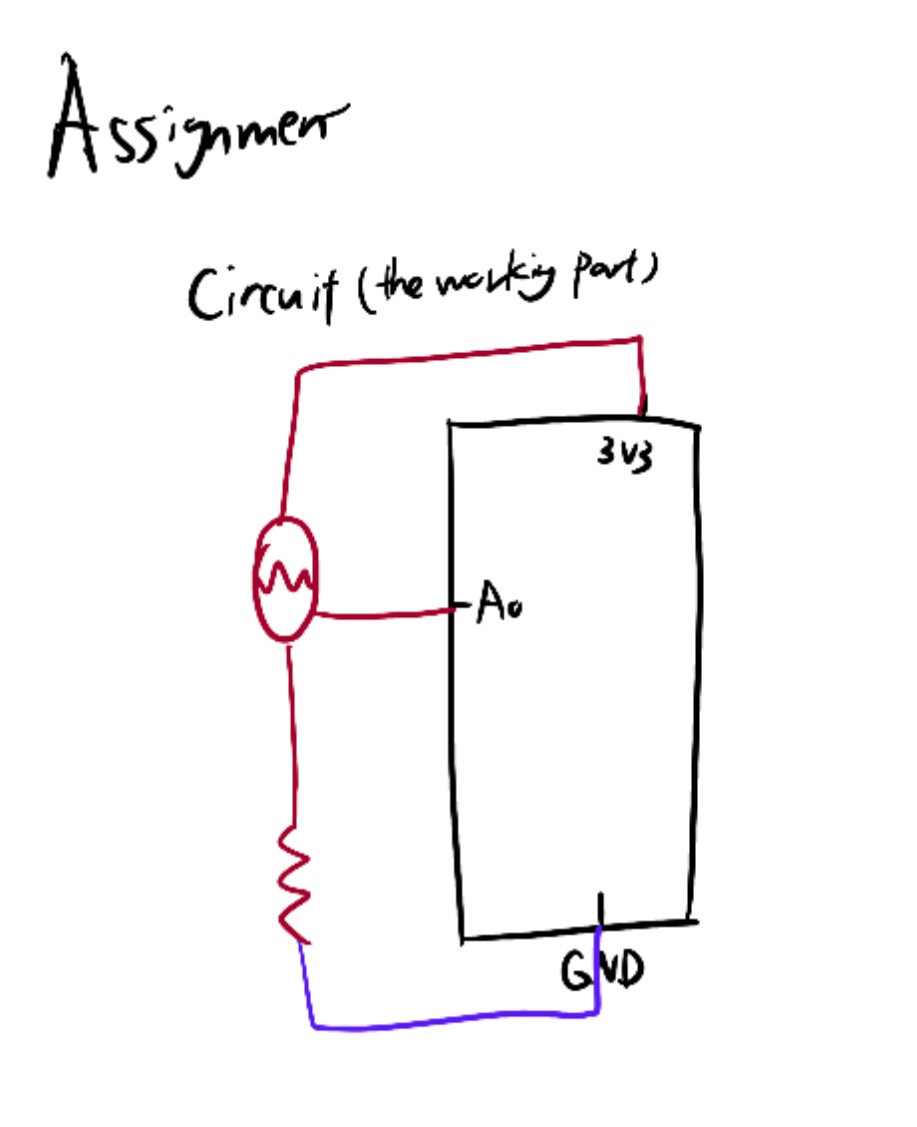 Assignment
Circuit (the working part)
3V3
A0
GND